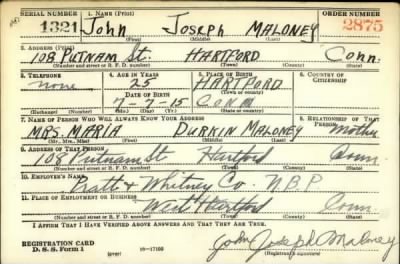 SERIAL NUMBER 1. NAME (Print) ORDER NUMBER
1321 John Joseph MALONEY 2875
(First) (Middle) (Last)
2. ADDRESS (Print)
108 PUTNAM St. HARTFORD Conn.
(Number and street or R. F. D. number) (Town) (County) (State)
3. TELEPHONE 4. AGE IN YEARS 5. PLACE OF BIRTH 6. COUNTRY OF CITIZENSHIP
none 25 HARTFORD
DATE OF BIRTH (Town or county)
7-7-15 CONN
(Exchange) (Number) (Mo.) (Day) (Yr.) (State or country)
7. NAME OF PERSON WHO WILL ALWAYS KNOW YOUR ADDRESS 8. RELATIONSHIP OF THAT PERSON
MRS. MARIA DURKIN MALONEY Mother
(Mr., Mrs., Miss) (First) (Middle) (Last)
9. ADDRESS OF THAT PERSON
108 Putnam St Hartford Conn.
(Number and street or R. F. D. number) (Town) (County) (State)
10. EMPLOYER'S NAME
Pratt & Whitney Co. N.B.P
11. PLACE OF EMPLOYMENT OR BUSINESS
West Hartford Conn.
(Number and street or R. F. D. number) (Town) (County) (State)
I AFFIRM THAT I HAVE VERIFIED ABOVE ANSWERS AND THAT THEY ARE TRUE.
REGISTRATION CARD
D. S. S. Form 1 (over) 16-17105 John Joseph Maloney